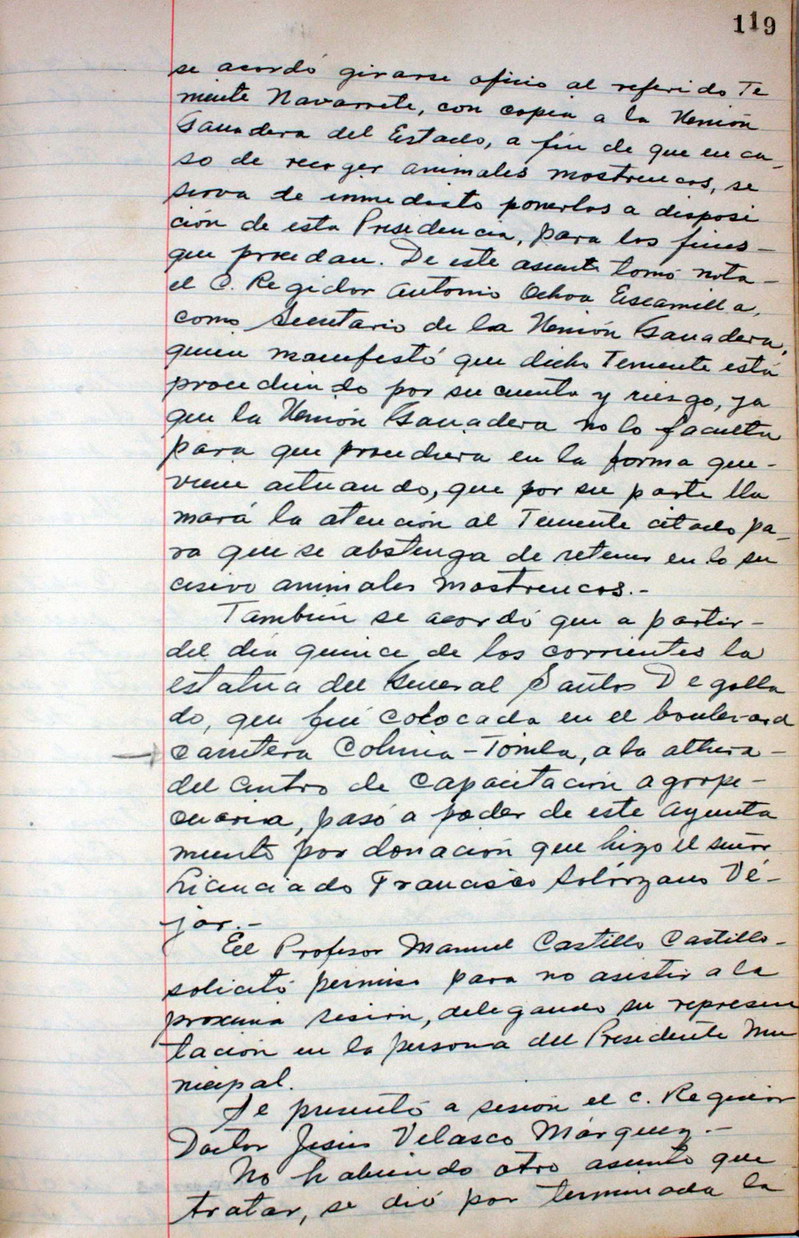 119
se acordó girarse oficio al referido Te
niente Navarrete, con copia a la Unión
Ganadera del Estado, a fin de que en ca-
so de recoger animales mostrencos, se
sirva de inmediato ponerlos a disposi
ción de esta Presidencia, para los fines-
que procedan. De este asunto tomó nota-
el C. Regidor Antonio Ochoa Escamilla,
como Secretario de la Unión Ganadera,
quien manifestó que dicho Teniente está
procediendo por su cuenta y riesgo, ya
que la Unión Ganadera no lo faculta
para que procediera en la forma que-
viene actuando, que por su parte lla
mará la atención al Teniente citado pa-
ra que se abstenga de retener en lo su
cesivo animales mostrencos.-
También se acordó que a partir-
del día quince de los corrientes la
estatua del General Santos Degolla
do, que fué colocada en el boulevard
carretera Colima-Tonila, a la altura-
del centro de capacitación agrope-
cuaria, pasó a poder de este Ayunta
miento por donación que hizo el señor
Licenciado Francisco Solórzano Bé-
jar.-
El Profesor Manuel Castillo Castillo-
solicitó permiso para no asistir a la
proxima sesión, delegando su represen
tación en la persona del Presidente Mu
nicipal.
Se presentó a sesión el C. Regidor
Doctor Jesús Velasco Márquez.-
No habiendo otro asunto que
tratar, se dió por terminada la